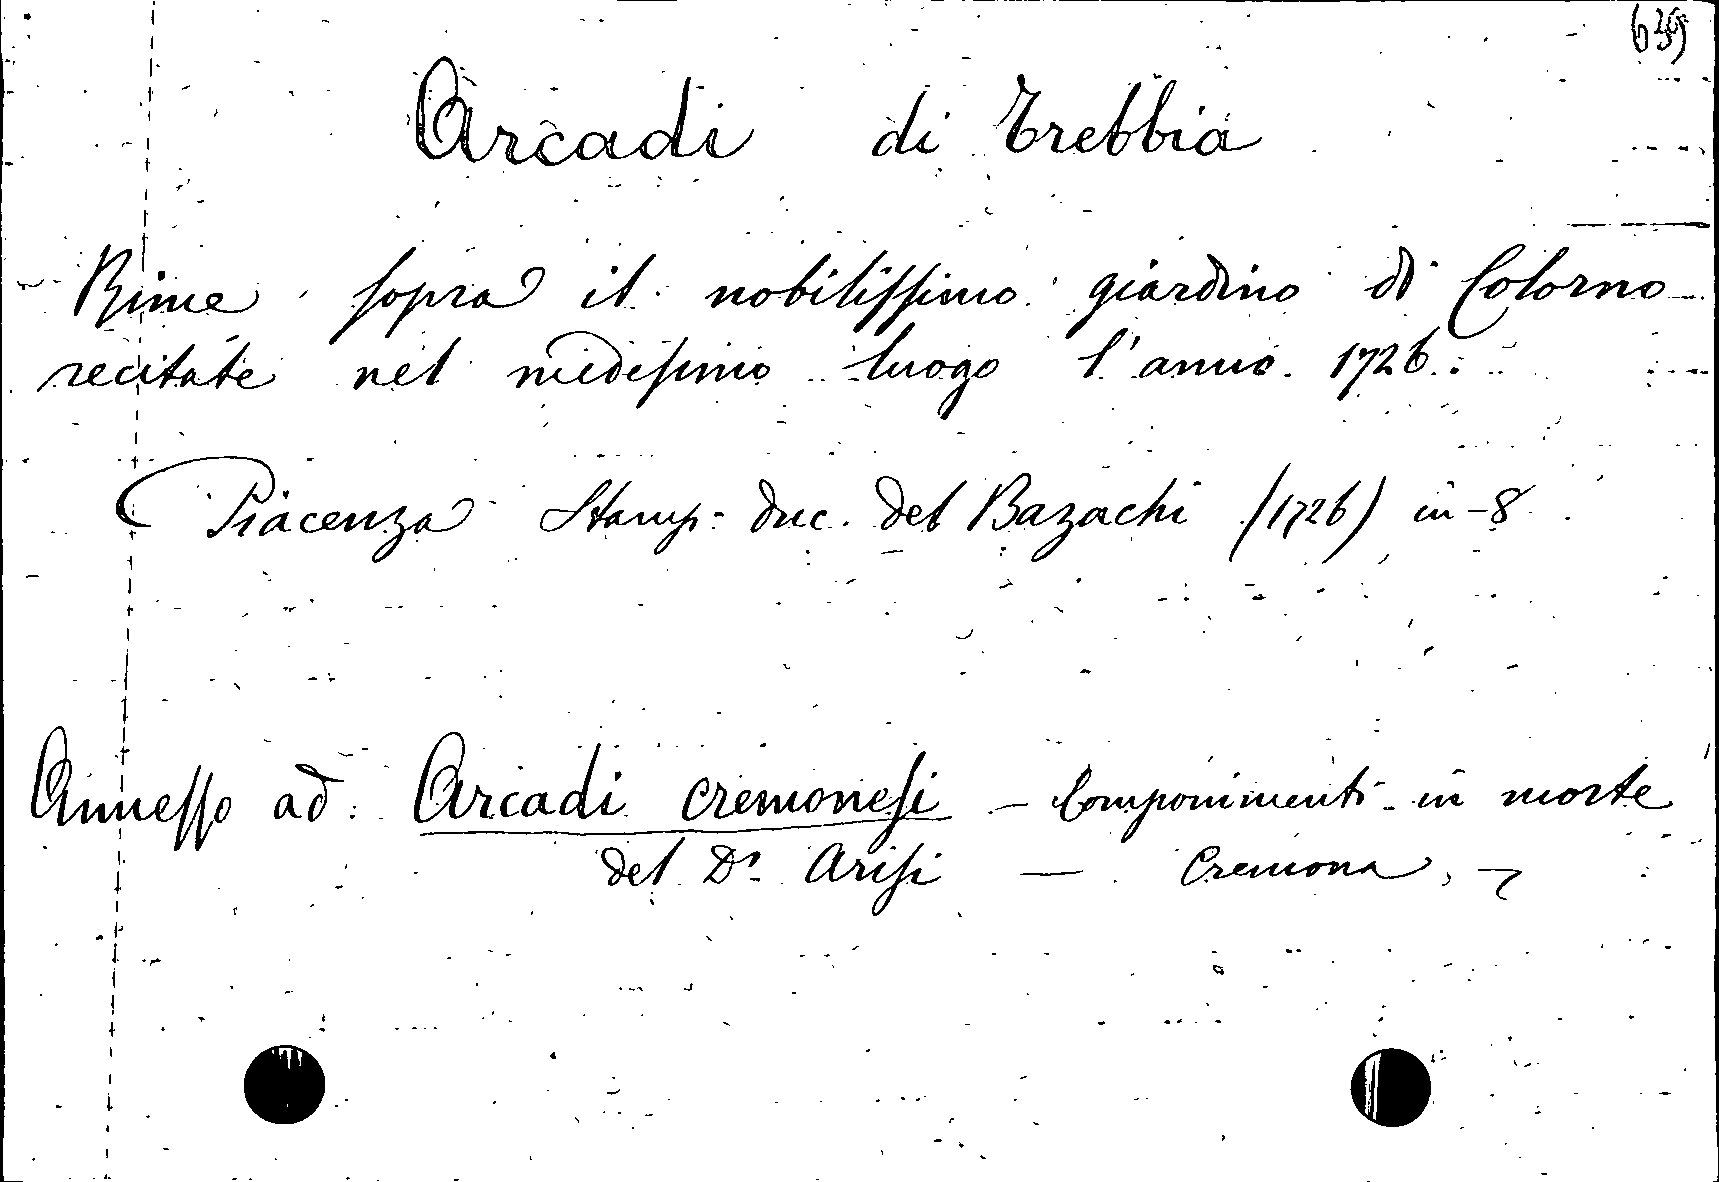 639
Arcadi di Trebbia
Rime sopra il nobilissimo giardino di Colorno
recitate nel medesimo luogo l'anno 1726.
Piacenza Stamp. duc. del Bazachi (1726) in-8
Annesso ad: Arcadi cremonesi - Componimenti in morte
del Dr. Arisi — Cremona, -